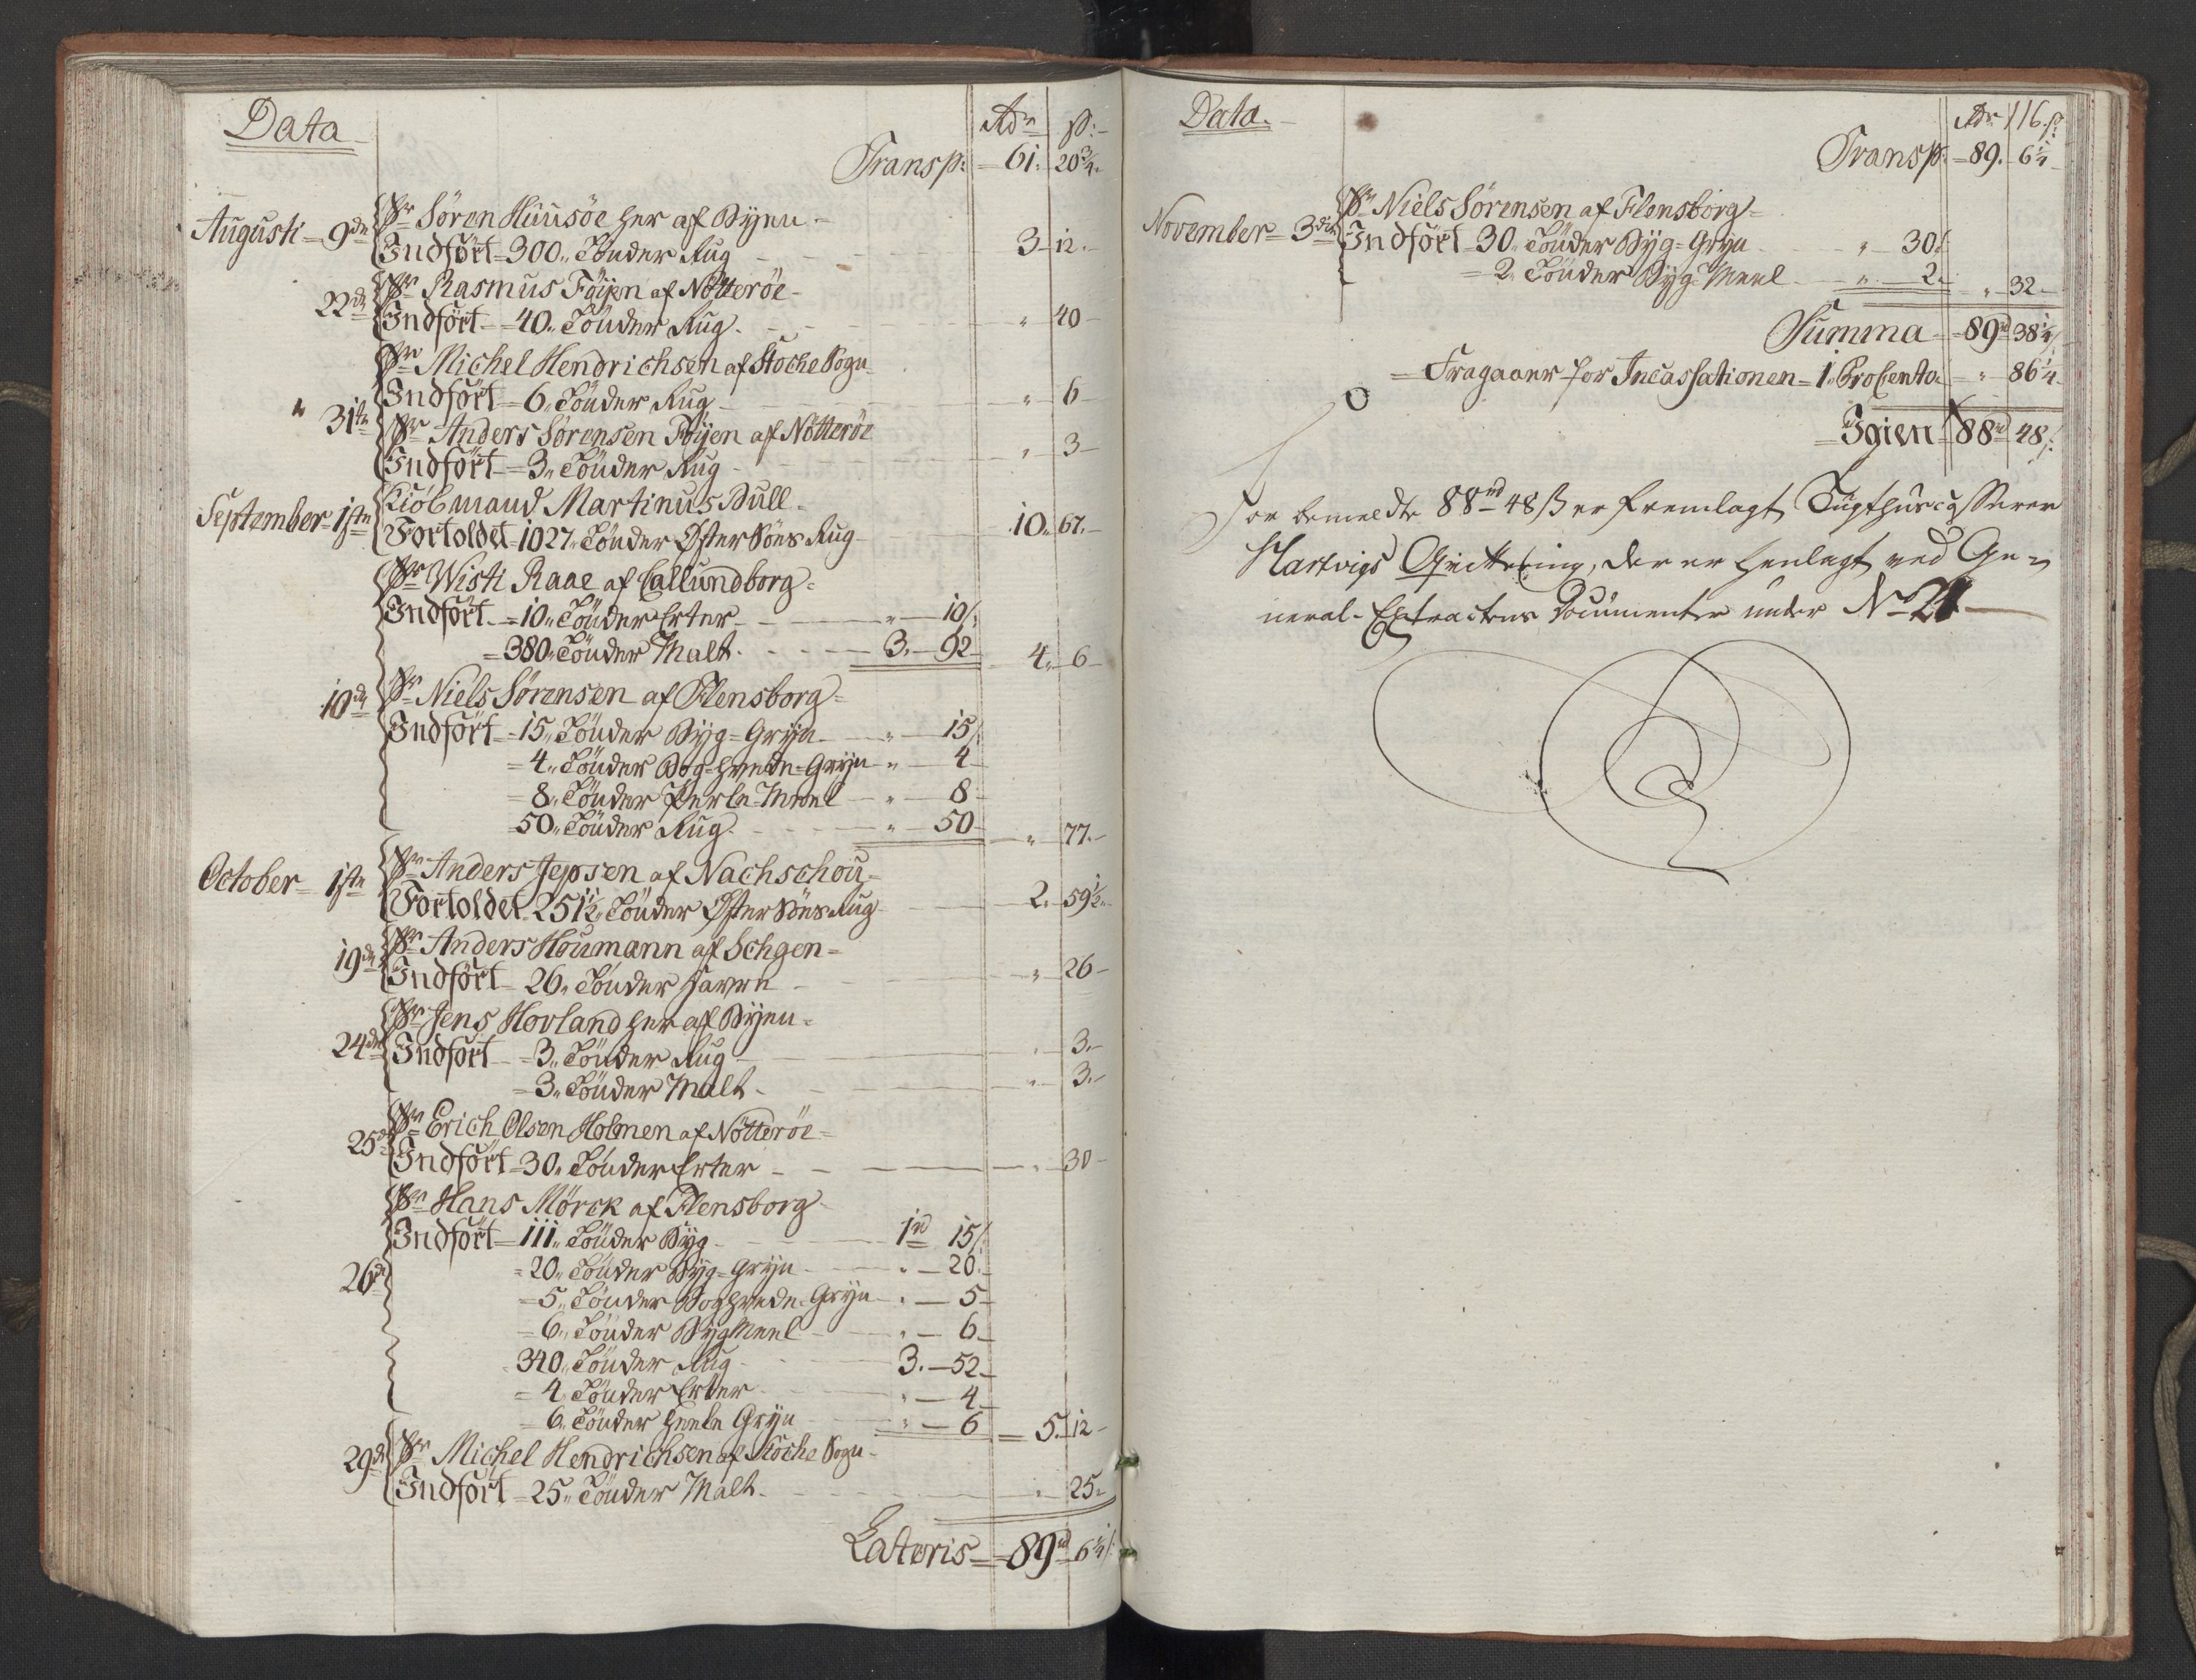 Data
Rdr ß:
Transp: 61. 20 3/4.
Augusti 9de Sr Søren Huusøe her af Byen
Indført 300. Tønder Rug 3 12.
22de Sr Rasmus Føyen af Nøtterøe
Indført 40. Tønder Rug " 40
Sr Michel Hendrichsen af Stoche Sogn
Indført 6. Tønder Rug " 6
" 31te Sr Anders Sørensen Føyen af Nøtterøe
Indført 3. Tønder Rug " 3
September 1ste Kiøbmand Martinus Bull
Fortoldet 1027. Tønder Øster Søes Rug 10. 67.
Sr Wisti Raae af Callundborg
Indført 10. Tønder Erter " 10/:
380. Tønder Malt 3. 92 4. 6
10de Sr Niels Sørensen af Flensborg
Indført 15. Tønder Byg-Gryn " 15/:
4. Tønder Bog-hvede-Gryn " 4
8. Tønder Perle-Meel " 8
50. Tønder Rug " 50 " 77.
October 1ste Sr Anders Jepsen af Nachschou
Fortoldet 251 1/2. Tønder Øster Søes Rug 2. 59 1/2.
19de Sr Anders Houmann af Schgen
Indført 26. Tønder Havre " 26
Sr Jens Hovland her af Byen
24de Indført 3. Tønder Rug " 3.
3. Tønder Malt " 3.
25de Sr Erich Olsen Holmen af Nøtterøe
Indført 30. Tønder Erter " 30
Sr Hans Mørck af Flensborg
Indført 111. Tønder Byg 1rd 15/:
26de 20. Tønder Byg-Gryn " 20.
5. Tønder Boghvede-Gryn " 5
6. Tønder Byg Meel " 6
340. Tønder Rug 3. 52
4. Tønder Erter " 4
6. Tønder Heele Gryn " 6 5. 12
29de Sr Michel Hendrichsen af Stoche Sogn
Indført 25. Tønder Malt " 25.
Lateris 89rd 6 1/4/:
Data.
Rdr 116. ß
Transp: 89. 6 1/4
November 3die Sr Niels Sørensen af Flensborg
Indført 30. Tønder Byg-Gryn " 30/:
2. Tønder Byg-Meel " 2 " 32
Summa 89rd 38 1/4/:
Fragaaer for Incassationen 1. Procento " 86 1/4
Igien 88rd 48/:
For bemeldte 88rd 48 ß er fremlagt Tugthuscasserer
Hartvigs Qvittering, der er henlagt ved Ge-
neral-Extractens Documenter under No 21